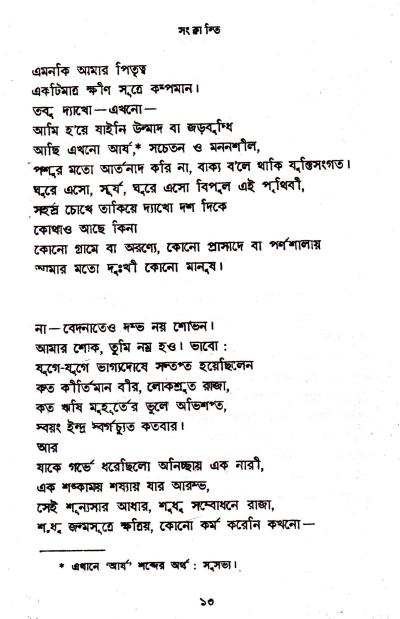 সংক্রান্তি
এমনকি আমার পিতৃত্ব
একটিমাত্র ক্ষীণ সূত্রে কম্পমান।
তবু দ্যাখো—এখনো—
আমি হ'য়ে যাইনি উন্মাদ বা জড়বুদ্ধি
আছি এখনো আর্য,* সচেতন ও মননশীল,
পশুর মতো আর্তনাদ করি না, বাক্য ব'লে থাকি যুক্তিসংগত।
ঘুরে এসো, সূর্য, ঘুরে এসো বিপুল এই পৃথিবী,
সহস্র চোখে তাকিয়ে দ্যাখো দশ দিকে
কোথাও আছে কিনা
কোনো গ্রামে বা অরণ্যে, কোনো প্রাসাদে বা পর্ণশালায়
আমার মতো দুঃখী কোনো মানুষ।
না—বেদনাতেও দম্ভ নয় শোভন।
আমার শোক, তুমি নম্র হও। ভাবো :
যুগে-যুগে ভাগ্যদোষে সন্তপ্ত হয়েছিলেন
কত কীর্তিমান বীর, লোকশ্রুত রাজা,
কত ঋষি মুহূর্তের ভুলে অভিশপ্ত,
স্বয়ং ইন্দ্র স্বর্গচ্যুত কতবার।
আর
যাকে গর্ভে ধরেছিলো অনিচ্ছায় এক নারী,
এক শঙ্কাময় শয্যায় যার আরম্ভ,
সেই শূন্যসার আধার, শুধু সম্বোধনে রাজা,
শুধু জন্মসূত্রে ক্ষত্রিয়, কোনো কর্ম করেনি কখনো—
* এখানে 'আর্য' শব্দের অর্থ : সুসভ্য।
১৩